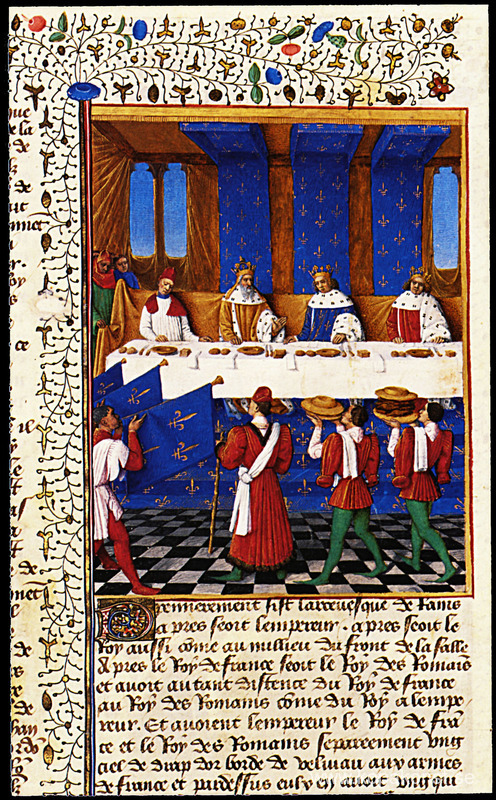 que
de la
de
ce
il
de
de
de
Premierement sist larcevesque de Rains
apres seoit lempereur . apres seoit le
roy aussi come au millieu du front de la salle
Apres le Roy de france seoit le Roy des Romais
et avoit autant distence du Roy de france
au Roy des Romanis come du Roy a lempe
reur. Et avoient lempereur le Roy de fra
ce et le Roy des Romanis separeement ung
ciel de drap dor borde de veluiau aux armes
de france et pardessus eulx en avoit ung qui